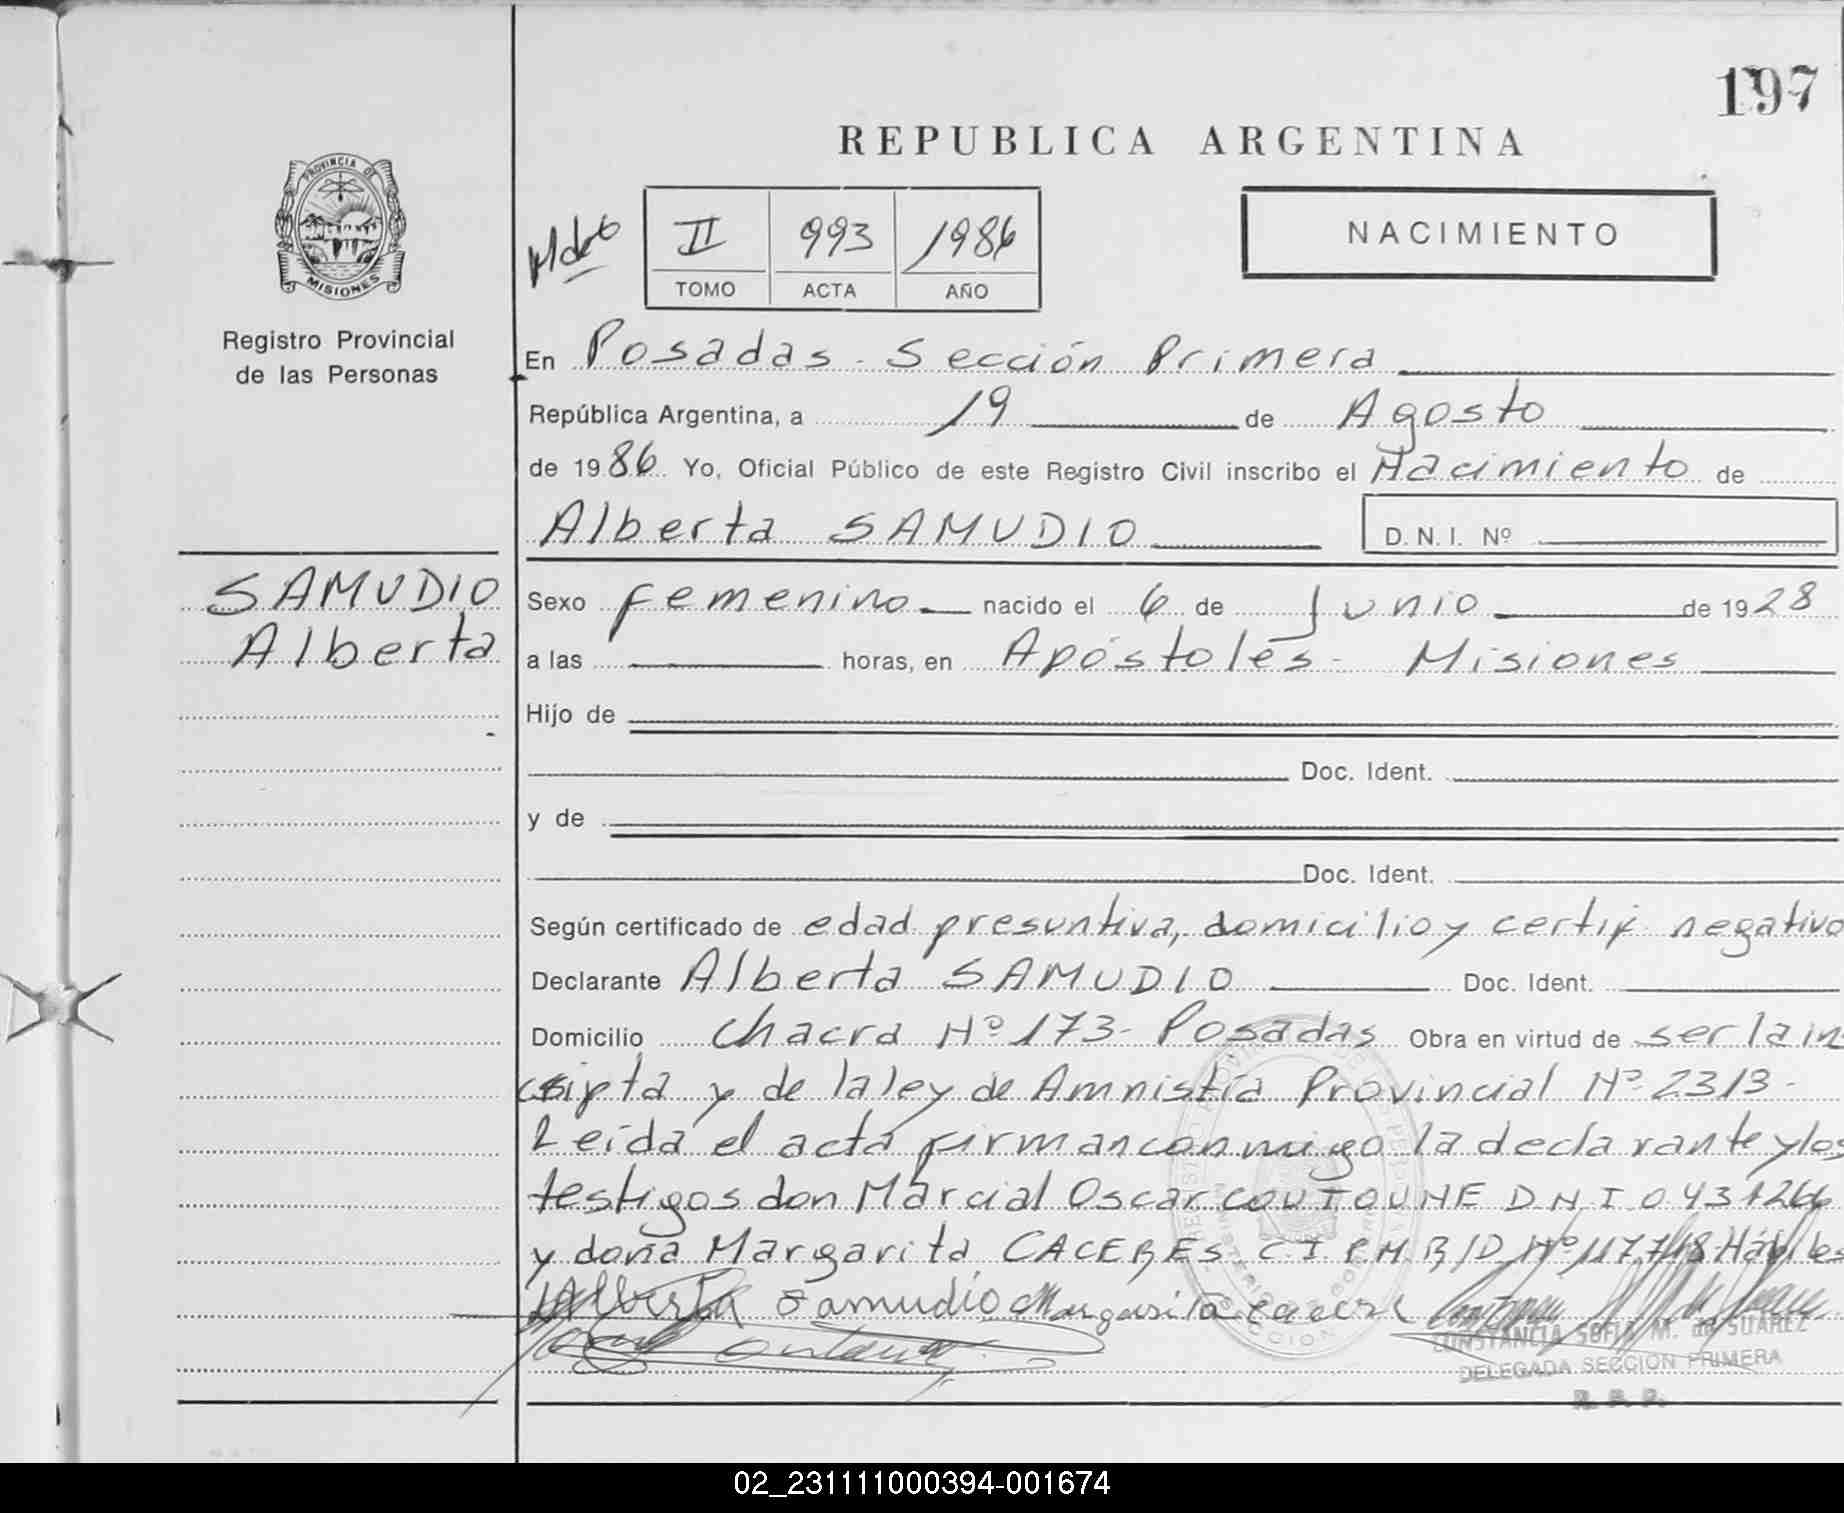 197
REPUBLICA ARGENTINA
PROVINCIA DE
MISIONES
Registro Provincial
de las Personas
II 993 1986
TOMO ACTA AÑO
NACIMIENTO
En Posadas - Sección Primera
República Argentina, a 19 de Agosto
de 1986 Yo, Oficial Público de este Registro Civil inscribo el Nacimiento de
Alberta SAMUDIO D.N.I. Nº
SAMUDIO
Alberta
Sexo femenino nacido el 6 de Junio de 1928
a las horas, en Apóstoles - Misiones
Hijo de
Doc. Ident.
y de
Doc. Ident.
Según certificado de edad presuntiva, domicilio y certif. negativo
Declarante Alberta SAMUDIO Doc. Ident.
Domicilio Chacra Nº 173 - Posadas Obra en virtud de ser la in
cripta y de la ley de Amnistía Provincial Nº 2313 -
Leída el acta firman conmigo la declarante y los
testigos don Marcial Oscar D N I 0431266
y doña Margarita CACERES C.I. Nº 117.718 Hábiles
Alberta Samudio Margarita
CONSTANCIA SOFIA M. de SUAREZ
DELEGADA SECCION PRIMERA
02_231111000394-001674